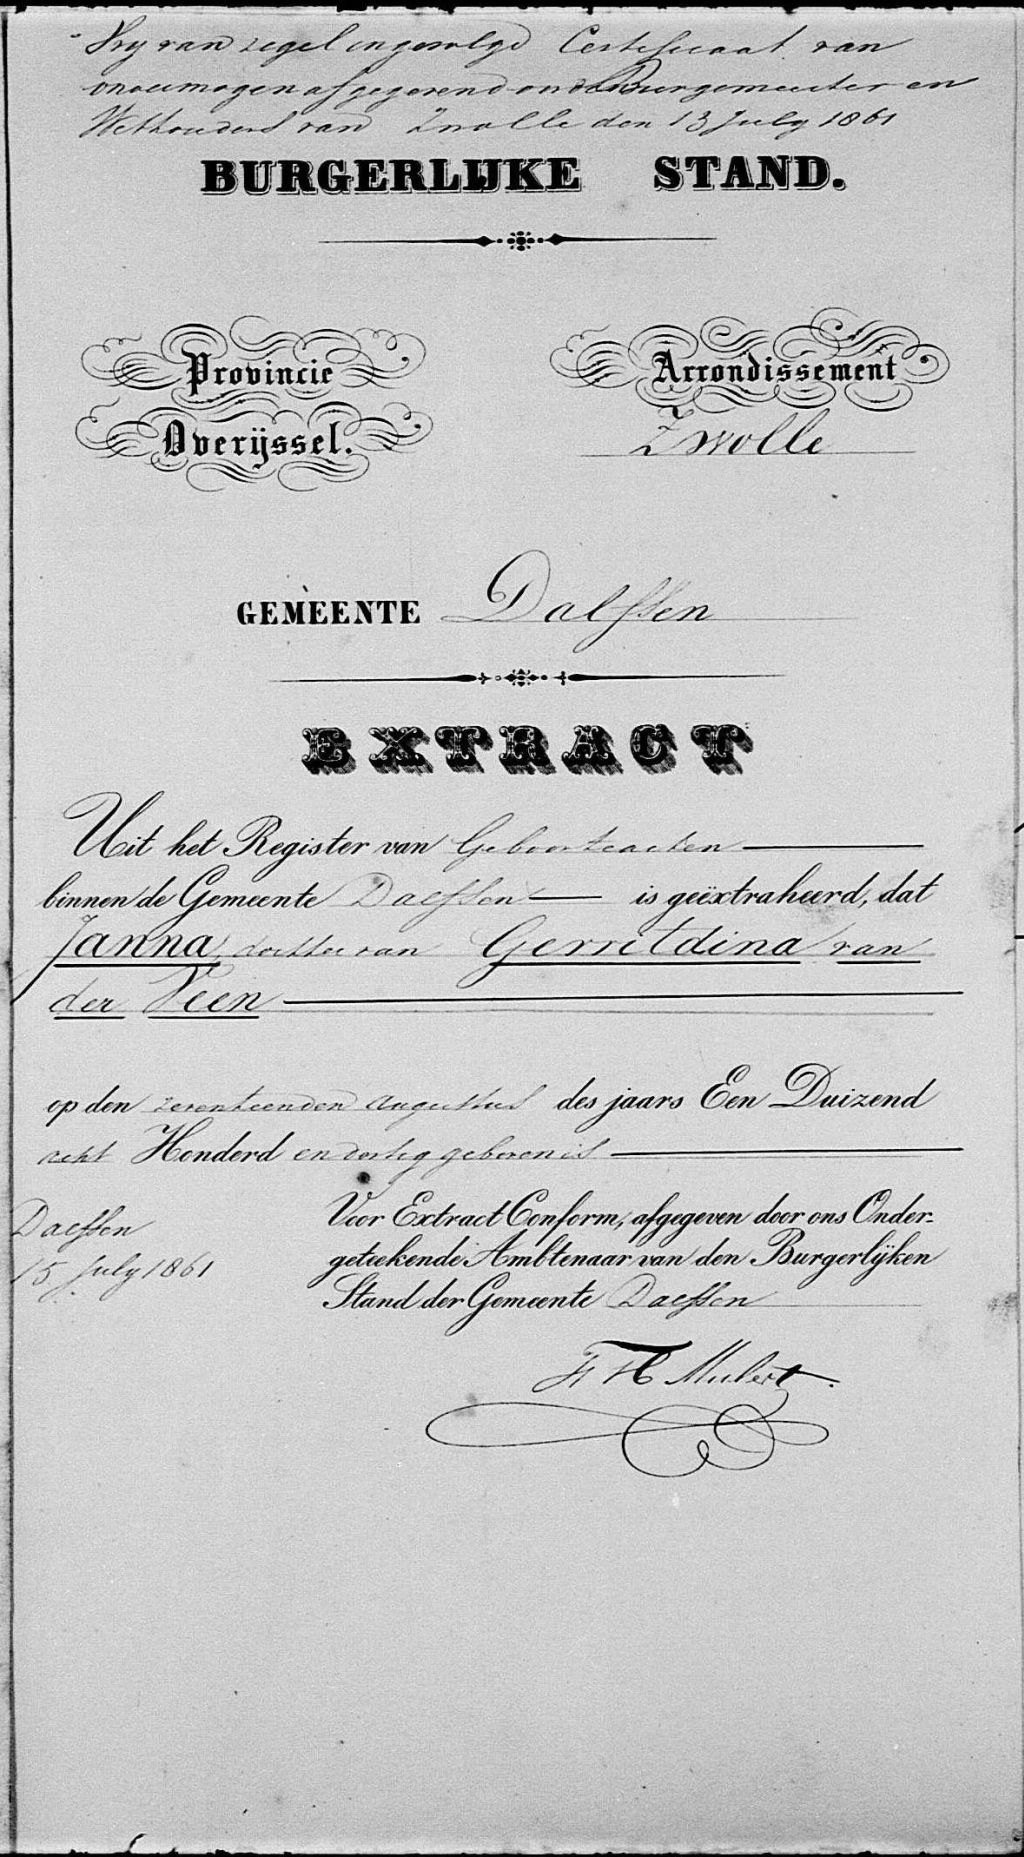 Vry van zegel ingevolge Certificaat van
onvermogen afgegeven door Burgemeester en
Wethouders van Zwolle den 13 July 1861
BURGERLIJKE STAND.
Provincie
Overijssel.
Arrondissement
Zwolle
GEMEENTE Dalfssen
EXTRACT
Uit het Register van Geboorteacten
binnen de Gemeente Dalfssen is geëxtraheerd, dat
Janna, dochter van Gerritdina van
der Veen
op den zeventienden Augustus des jaars Een Duizend
acht Honderd en dertig geboren is
Dalfssen
15 July 1861
Voor Extract Conform, afgegeven door ons Onder-
geteekende Ambtenaar van den Burgerlijken
Stand der Gemeente Dalfssen
F H Mulert.